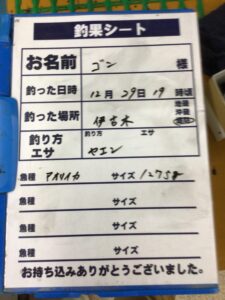 釣果シート
お名前 ゴン 様
釣った日時 12月29日19時頃
釣った場所 伊古木 池磯 沖磯
釣り方 エサ
釣り方 エサ
ヤエン
魚種 アオリイカ サイズ 1275g
魚種 サイズ
魚種 サイズ
魚種 サイズ
お持ち込みありがとうございました。